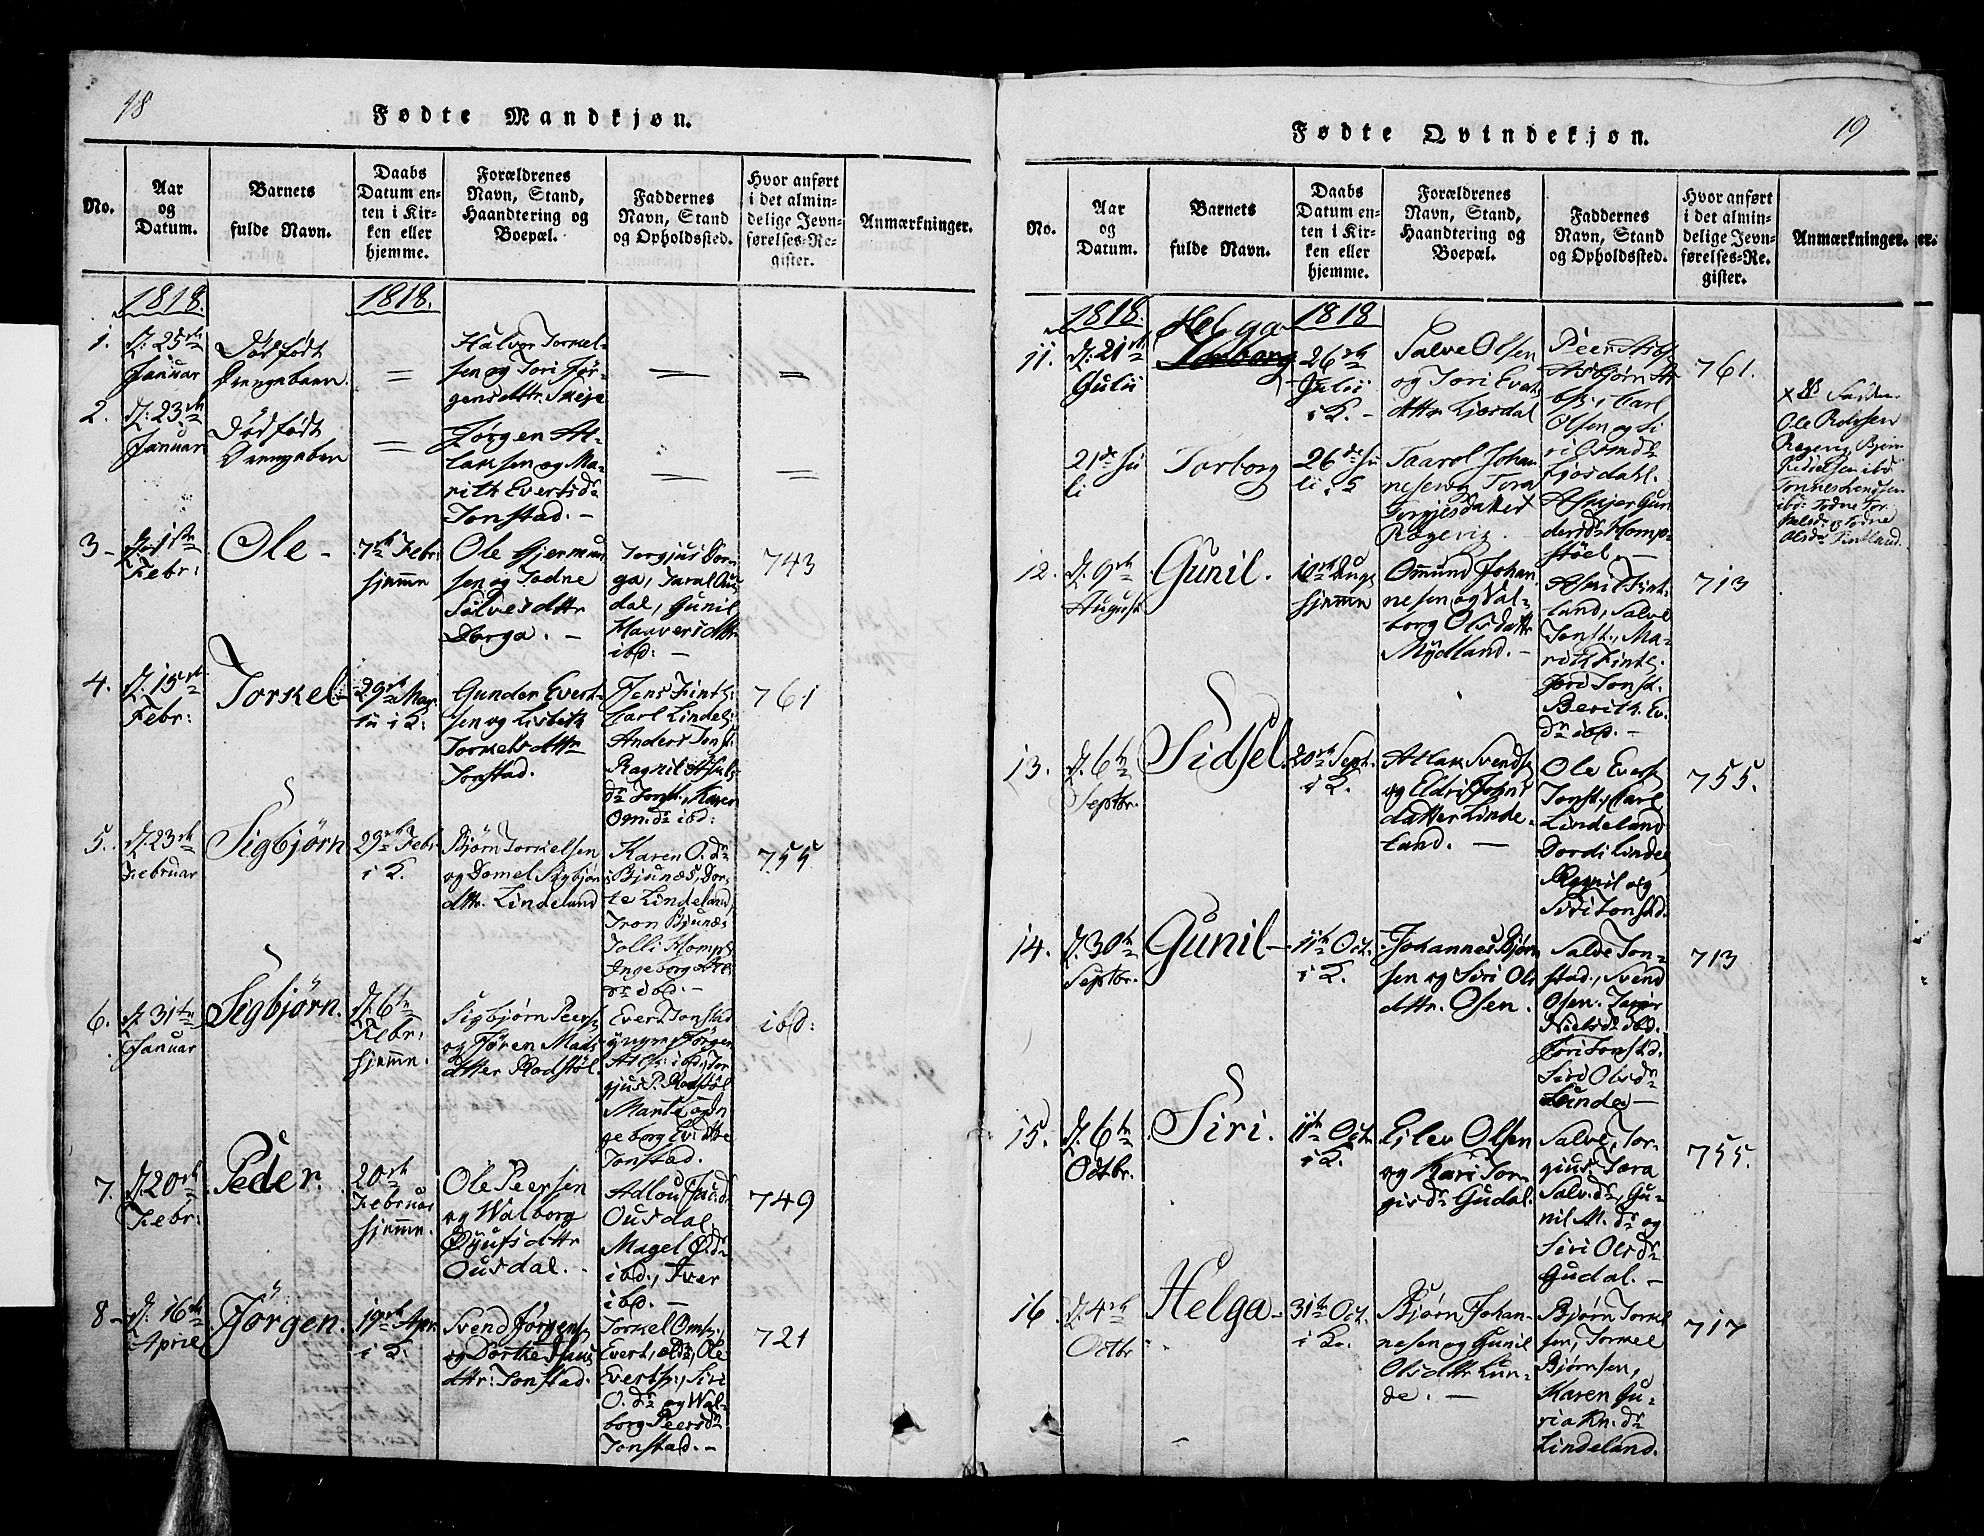 18
Fødte Mandkjøn.
No.
Aar
og
Datum.
Barnets
fulde Navn.
Daabs
Datum en-
ten i Kir-
ken eller
hjemme.
Forældrenes
Navn, Stand,
Haandtering og
Boepæl.
Faddernes
Navn, Stand
og Opholdssted.
Hvor anført
i det almin-
delige Jevn-
førelses-Re-
gister.
Anmærkninger.
1818.
1818.
1.
d: 25de
Januar
Dødfødt
Drengebarn
=
Halvor Torkel-
sen og Tori Jør-
gensdttr.
=
=
2.
d: 23de
Januar
Dødfødt
=
Jørgen At-
laksen og Ma-
rith Evertsdr
Tonstad. -
=
=
3-
Febr:
Ole -
7de Febr:
hjemme
Ole Gjermun
sen og Todne
Salvesdttr
Dorga. -
Torgjus Dor-
ga, Taral Ous
dal, Gunil
Haaversdttr
ibd: -
743
4.
d: 15de
Febr:
Torkel
29de Mar
tii i K:
Gunder Evert-
sen og Lisbeth
Torkelsdttr
Tonstad.
Jens Fintl:
Carl Lindel:
Anders Tonst:
Ragnil Asuls
dr Tonst:, Karen
Om.dr ibd:
761
5.
d: 23de
Februar
Sigbjørn
29de Febr:
i K.
Bjørn Torkelsen
og Domel Sigbjørns
dttr. Lindeland
Karen O.dr
Bjunes, Dor-
te Lindeland,
Tron Bjunes
Tolli Homp:
Ingeborg
dr ibd. -
755
6.
d. 31te
Januar
Sigbjørn.
d. 6te
Febr:
hjemme.
Sigbjørn Peers:
og Jøren Mads
datter Rodstøl
Evert Tonstad
yngre, Jørgen
Atls: ibd:, Tor-
gjus P. Rodstøl
Marte og In
geborg Ev.dttre
Tonstad.
ibd:
7.
d. 20de
Febr:
Peder.
20de
Februar
hjemme.
Ole Peersen
og Walborg
Øyufsdttr
Ousdal. -
Ousdal,
Magel O.dr
ibd., Iver
ibd. -
749
8-
d. 16de
Aprie
Jörgen.
19de Apr:
i K.
Svend Jørgens:
og Dorthe
dttr: Tonstad.
Torkel Oms:,
Evert, ældr, Ole
Everts:, Siri
O.dr og Wal-
borg Peersdr
Tonstad. -
721
19
Fødte Qvindekjøn.
No.
Aar
og
Datum.
Barnets
fulde Navn.
Daabs
Datum en-
ten i Kir-
ken eller
hjemme.
Forældrenes
Navn, Stand,
Haandtering og
Boepæl.
Faddernes
Navn, Stand
og Opholdssted.
Hvor anført
i det almin-
delige Jevn-
førelses-Re-
gister.
Anmærkninger.
1818.
1818
11.
d. 21de
Julii
Helga
26de
Julii
i K. -
Salve Olsen
og Tori Everts
dttr. Liosdal
Asbjørn
i Carl
Olsen og Si
ri
Asbjer Gun
dersdr Homp-
støel. -
761.
Ole
Røgevig Bjørn
ibd
Tonnes
ibd: Todne Tor-
og Todne
Olsdr Fintland.
21de Ju
li
Torborg
26de Ju
li i
Taarol Johan
nesen og Tora
Torgjesdatter
Røgevig.
12.
d. 9de
August
Gunil.
10de Aug:
hjemme
Ommund Johan-
nesen og Wal-
borg Olsdattr
Mydland. -
Fint-
land, Salve
Tonst:, Ma-
rith Fintl.
Tori Tonst:
Berith Ev.
dr ibd. -
713
13.
d. 6te
Septbr.
Sidsel.
20de Sept.
i K.
Atlak Svends:
og Eldri Johns
datter Linde-
land. -
Ole Evers:
Tonst:, Carl
Lindeland
Dordi Lindel,
Ragnil og
Siri Tonstad.
755.
14.
d. 30te
Septbr.
Gunil -
11te Oct.
i K.
Johannes Bjørn
sen og Siri Ols
dttr. Osen.
Salve Ton-
stad, Svend
Osen.
Nielsdr ibd.
Tori Tonstad.
Siri Olsdr
Lunde -
713
15.
d. 6te
Octbr.
Siri.
11te Oct.
i K.
Ejlev Olsen
og Kari Tor-
gisdr Gudal.
Salve, Tor-
gjus, Tara
Salv.dr, Gu-
nil M.dr og
Siri Olsdr
Gudal. -
755.
16
d. 4de
Octbr
Helga -
31te Oct.
i K.
Bjørn Johan-
nesen og Gunil
Olsdttr Lun-
de. -
Bjørn Torkel
sen, Torkel
Bjørnsen,
Karen Gu-
ri a Kn.dr
Lindeland.
717